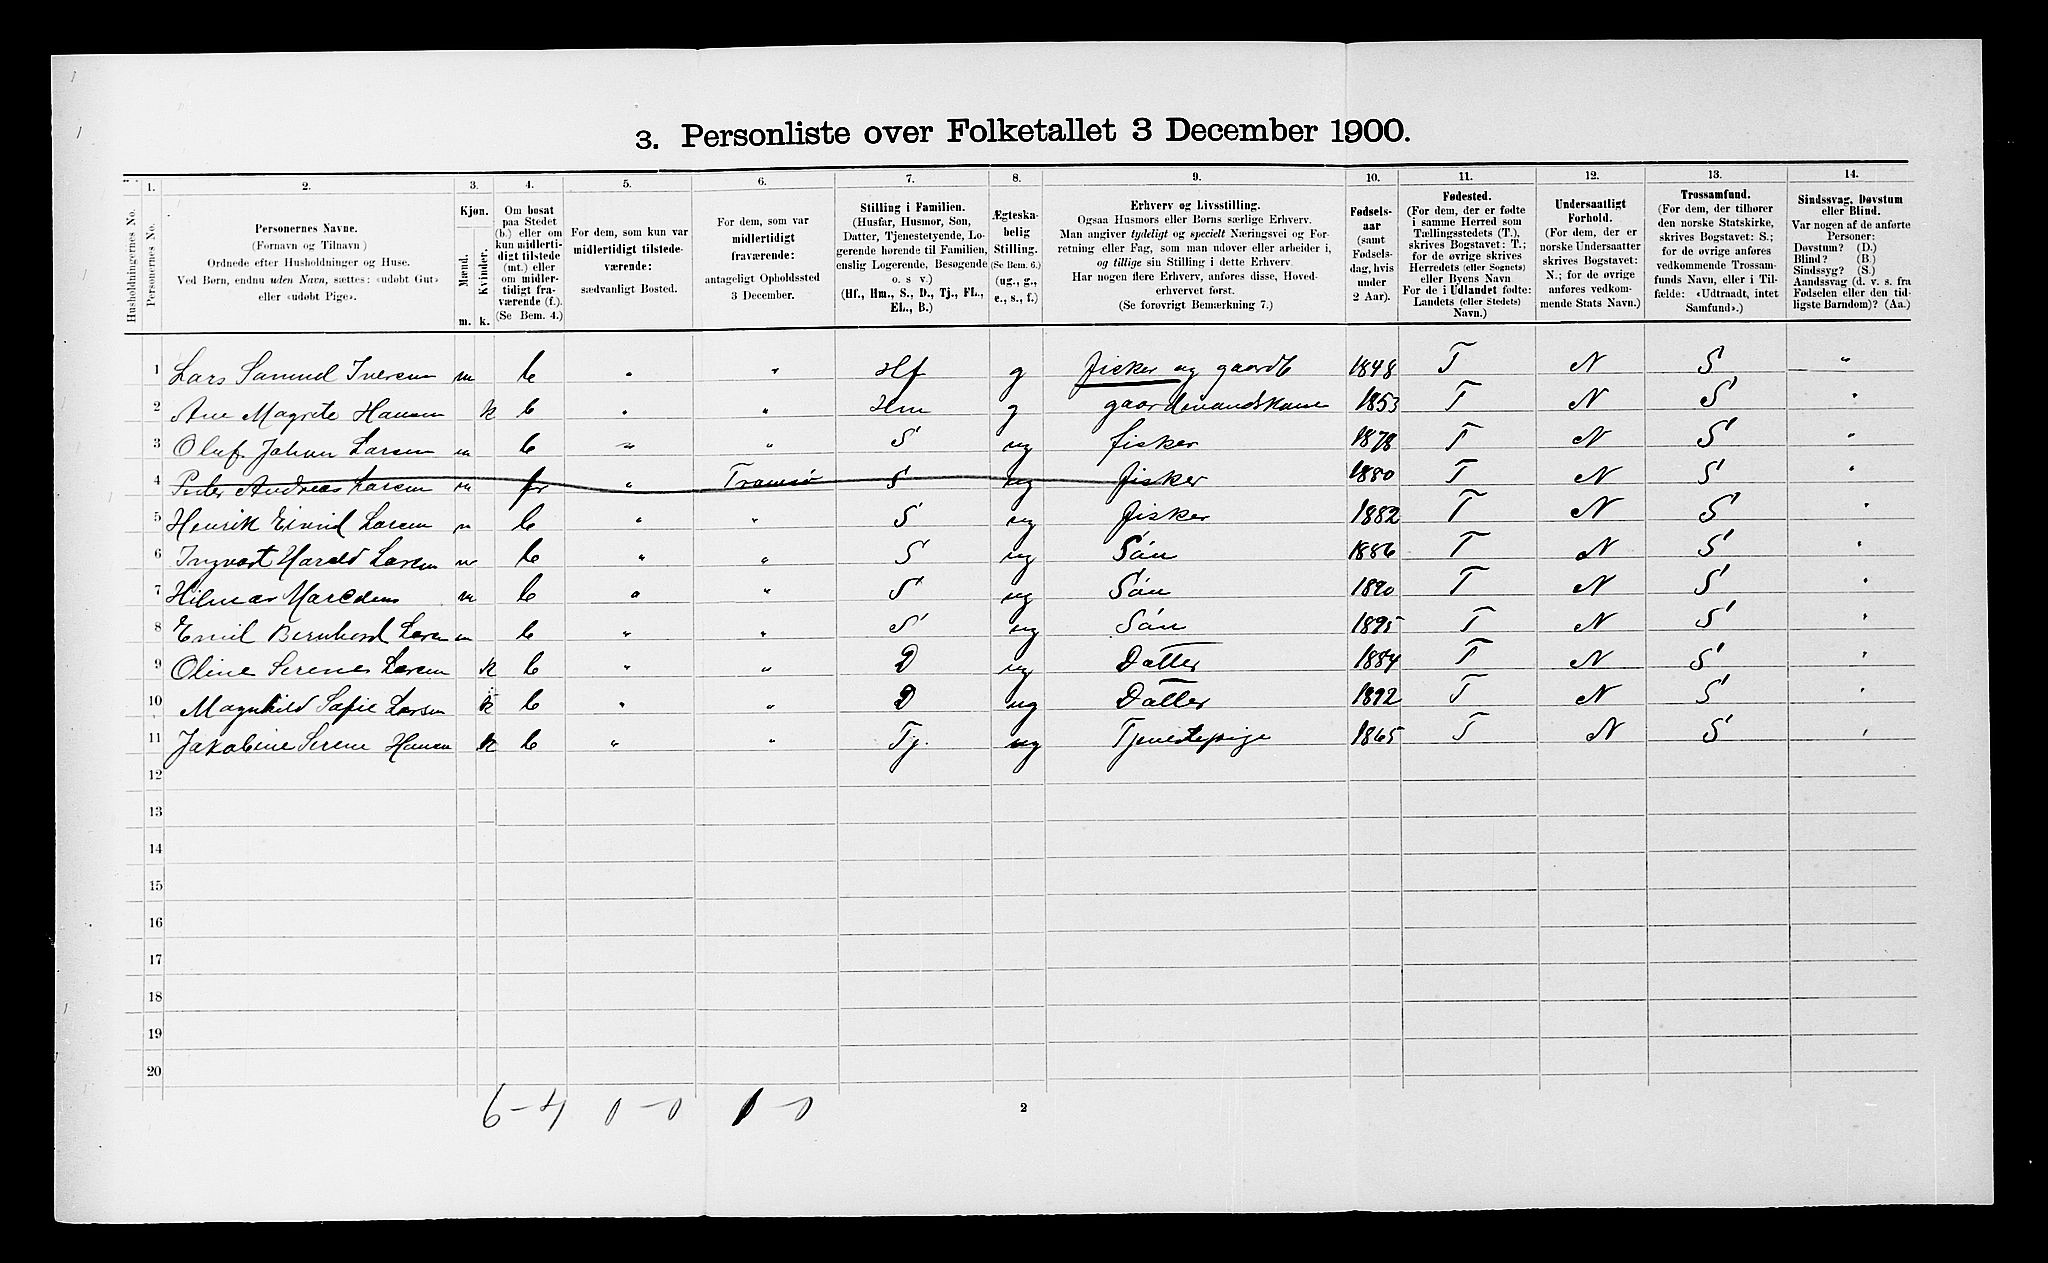 3. Personliste over Folketallet 3 December 1900.
Husholdningernes No.
1. Personernes No.
2. Personernes Navne. (Fornavn og Tilnavn) Ordnede efter Husholdninger og Huse. Ved Børn, endnu uden Navn, sættes: «udøbt Gut» eller «udøbt Pige».
3. Kjøn. Mænd. m. Kvinder. k.
4. Om bosat paa Stedet (b.) eller om kun midlertidigt tilstede (mt.) eller om midlertidigt fraværende (f.) (Se Bem. 4.)
5. For dem, som kun var midlertidigt tilstedeværende: sædvanligt Bosted.
6. For dem, som var midlertidigt fraværende: antageligt Opholdssted 3 December.
7. Stilling i Familien. (Husfar, Husmor, Søn, Datter, Tjenestetyende, Logerende hørende til Familien, enslig Logerende, Besøgende o. s v.) (Hf., Hm., S., D., Tj., FL., EL., B.)
8. Ægteskabelig Stilling. (Se Bem. 6.) (ug., g., e., s., f.)
9. Erhverv og Livsstilling. Ogsaa Husmors eller Børns særlige Erhverv. Man angiver tydeligt og specielt Næringsvei og Forretning eller Fag, som man udøver eller arbeider i, og tillige sin Stilling i dette Erhverv. Har nogen flere Erhverv, anføres disse, Hovederhvervet først. (Se forøvrigt Bemærkning 7.)
10. Fødselsaar (samt Fødselsdag, hvis under 2 Aar).
11. Fødested. (For dem, der er fødte i samme Herred som Tællingsstedets (T.), skrives Bogstavet: T.; for de øvrige skrives Herredets (eller Sognets) eller Byens Navn For de i Udlandet fødte: Landets (eller Stedets) Navn.)
12. Undersaatligt Forhold. (For dem, der er norske Undersaatter skrives Bogstavet: N.; for de øvrige anføres vedkommende Stats Navn.)
13. Trossamfund. (For dem, der tilhører den norske Statskirke, skrives Bogstavet: S.; for de øvrige anføres vedkommende Trossamfunds Navn, eller i Tilfælde: «Udtraadt, intet Samfund».)
14. Sindssvag, Døvstum eller Blind. Var nogen af de anførte Personer: Døvstum? (D.) Blind? (B.) Sindssyg? (S.) Aandssvag (d. v. s. fra Fødselen eller den tidligste Barndom)? (Aa.)
1 Lars Samuel Iversen m b " " Hf g fisker og gaardb 1848 T N S "
2 Ane Magrete Hansen k b " " Hm g gaardmandskone 1853 T N S "
3 Oluf Johan Larsen m b " " S ug fisker 1878 T N S "
4 Peder Andreas Larsen m fr " Tromsø S ug fisker 1880 T N S "
5 Henrik Eivind Larsen m b " " S ug fisker 1882 T N S "
6 Ingvart Harald Larsen m b " " S ug Søn 1886 T N S "
7 Hilmar m b " " S ug Søn 1890 T N S "
8 Emil Bernhard Larsen m b " " S ug Søn 1895 T N S "
9 Oline Serene Larsen k b " " D ug Datter 1884 T N S "
10 Magnhild Sofie Larsen k b " " D ug Datter 1892 T N S "
11 Jakobine Serene Hansen k b " " Tj. ug Tjenestepige 1865 T N S "
12
13
14
15
16
17
18
19
20
6-4 0-0 1-0
2